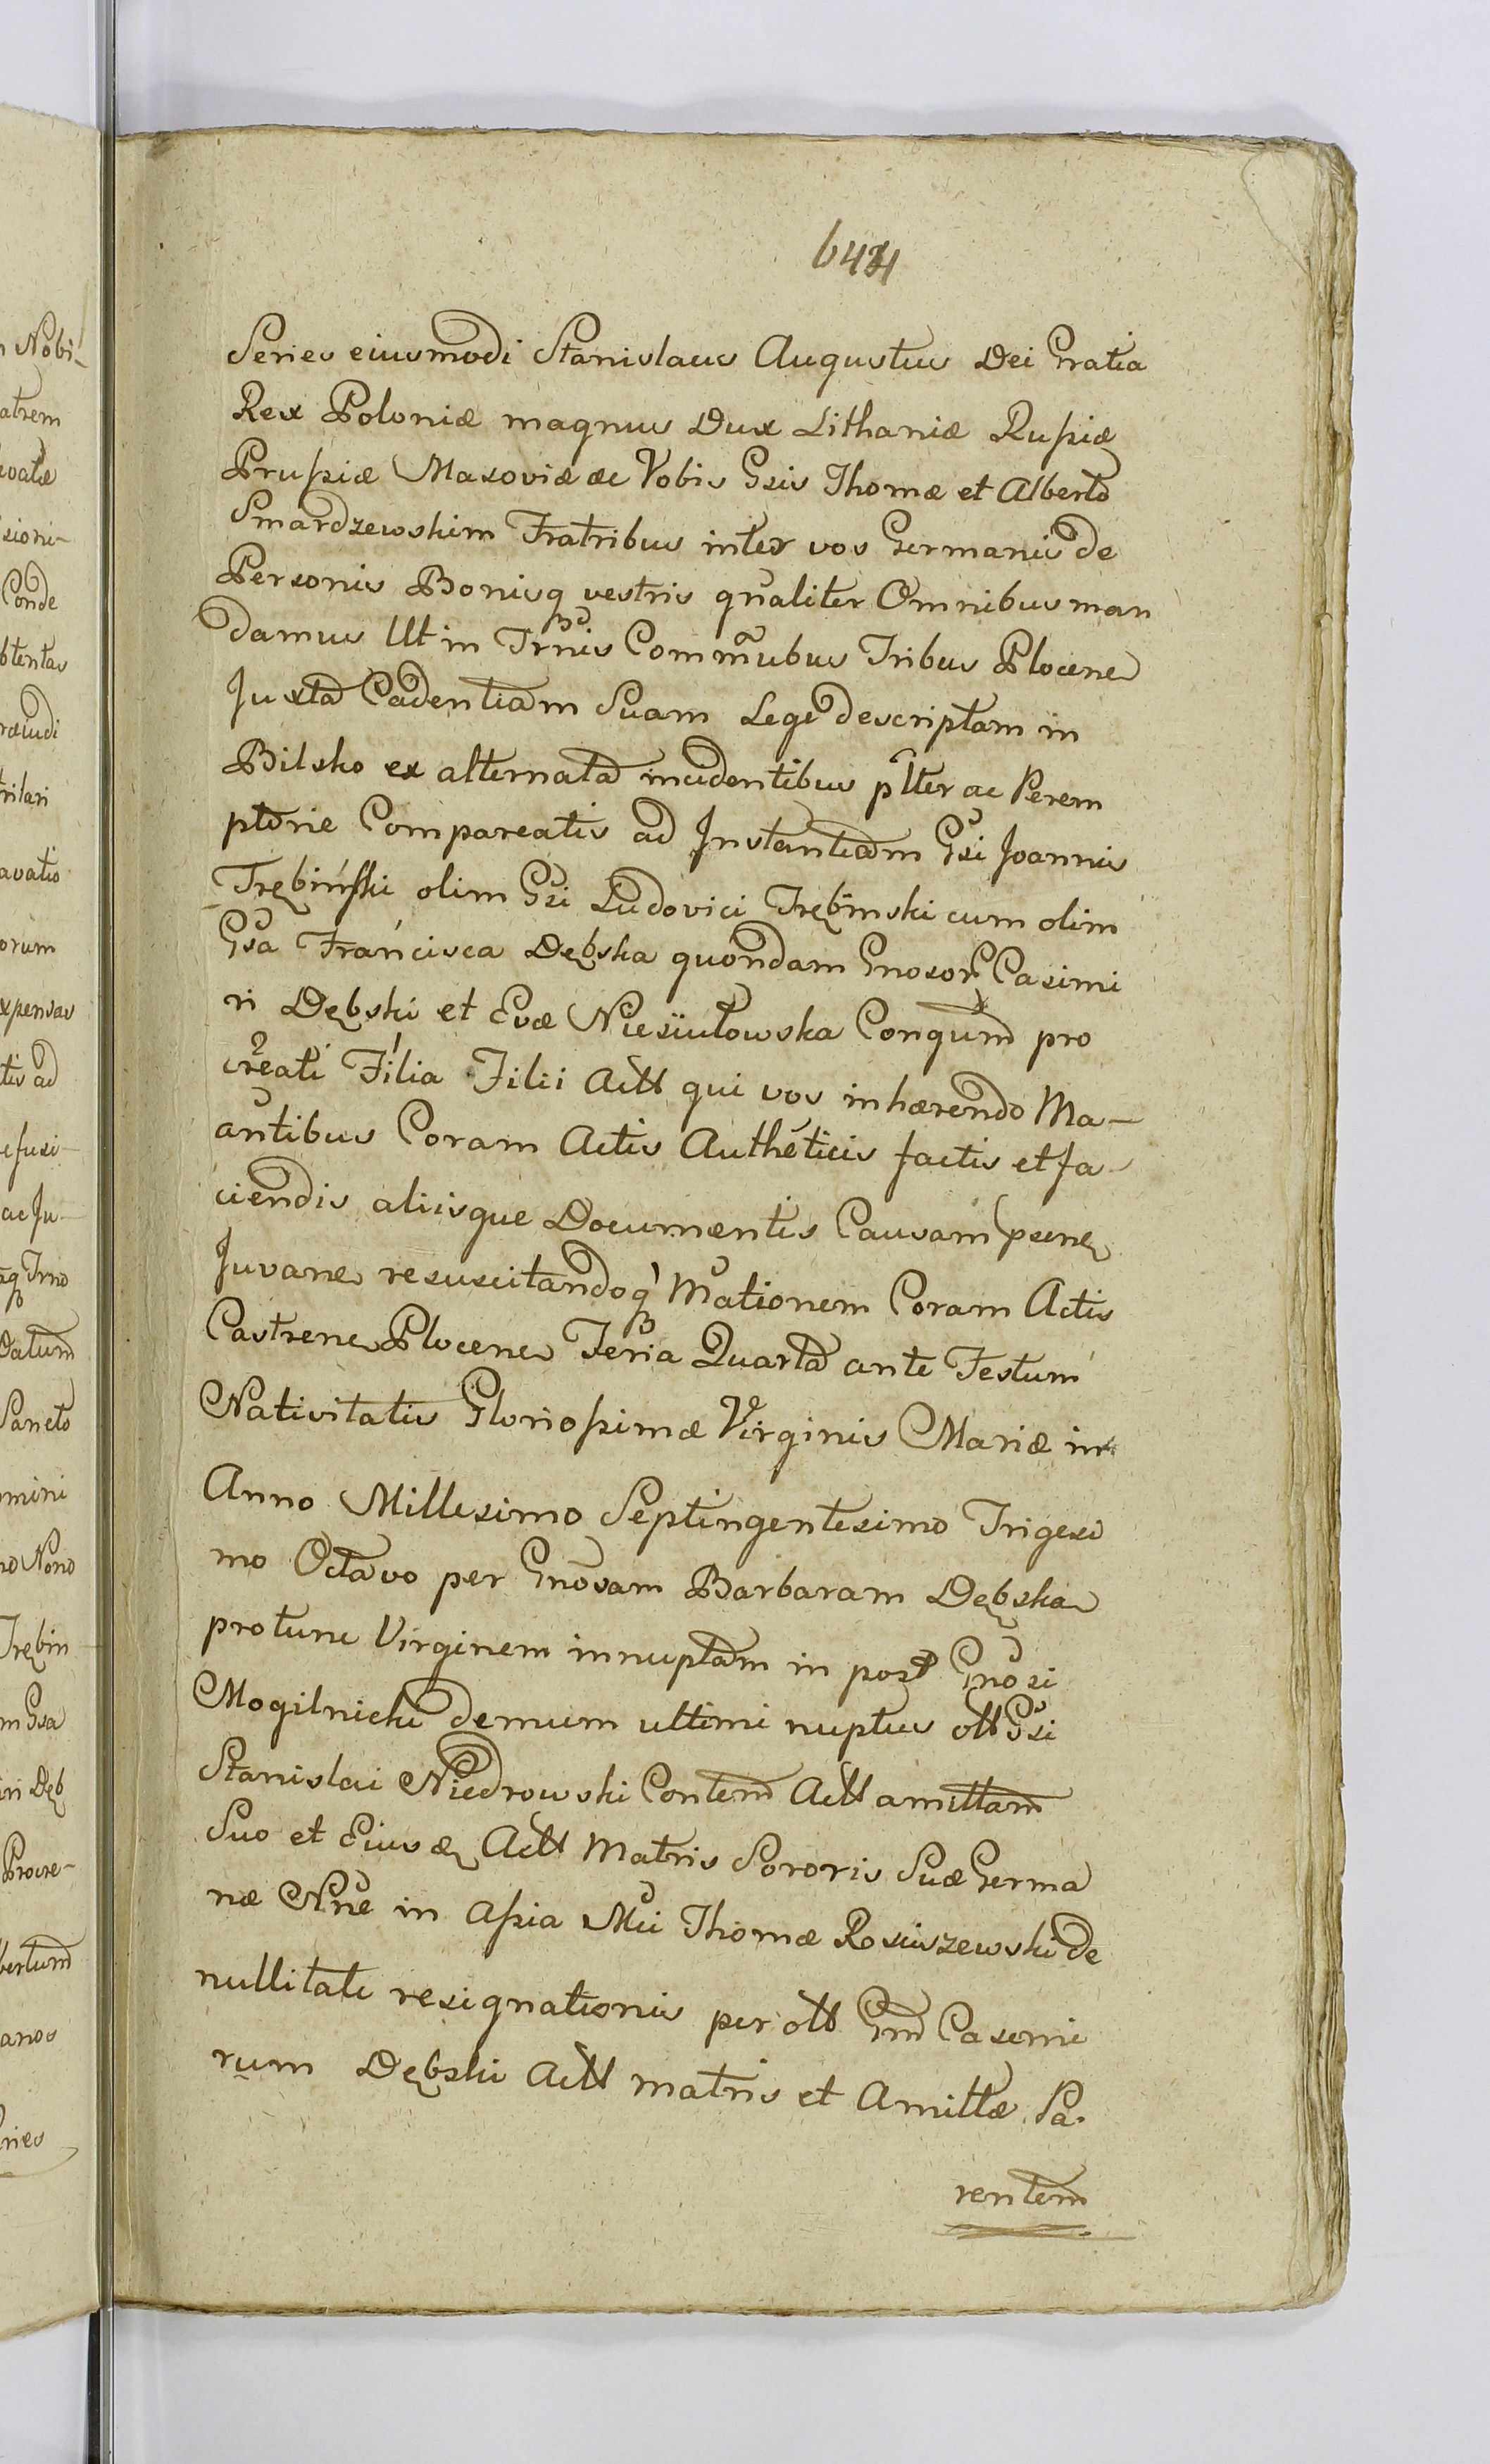 644
Series eiusmodi Stanislaus Augustus Dei Gratia
Rex Poloniæ magnus Dux Lithaniæ Rußiæ
Prußiæ Masoviæ &c Vobis Gsis Thomæ et Alberto
Smardzewskim Fratribus inter vos Germanis de
Personis Bonisq vestris qualiter Omnibus man
damus Ut in Trnis Commubus Tribus Plocene
Juxta Cadentiam Suam Lege descriptam in
Bilsko ex alternata incidentibus pltter ac Perem
ptorie Compareatis ad Instantiam Gsi Joannis
Trębinski olim Gsi Ludovici Trębinski cum olim
Gsa Francisca Dębska quondam Gnosor Casimi
ri Dębski et Evæ Niesiułowska Congum pro
creati Filia Filii Actt qui vos inhærendo Ma-
antibus Coram Actis Autheticis factis et fa
ciendis aliisque Documentis Causam psene
Juvane resuscitandoq Mationem Coram Actis
Castrene Plocene Feria Quarta ante Festum
Nativitatis Glorioßimæ Virginis Mariæ in
Anno Millesimo Septingentesimo Trigesi
mo Octavo per Gnosam Barbaram Dębska
protunc Virginem innuptam in post Gnosi
Mogilnicki demum ultimi nuptus ott Gsi
Stanislai Niedrowski Contem Actt amittam
Suo et Eiusd Actt Matris Sororis Suæ Germa
næ Nne in Aßia Mci Thomæ Rosciszewski de
nullitate resignationis per ott Gm Casemi
rum Dębski Actt matris et Amittæ Pa.
rentem
Nobi-
atrem
sioni-
Conde
btentas
ræludi
avatio
orum
xpensas
tis ad
efusi-
ac Ju-
Datum
Sancto
omini
no Nono
Trębin
m Gsa
iri Dęb
Procre-
bertum
anos
ries